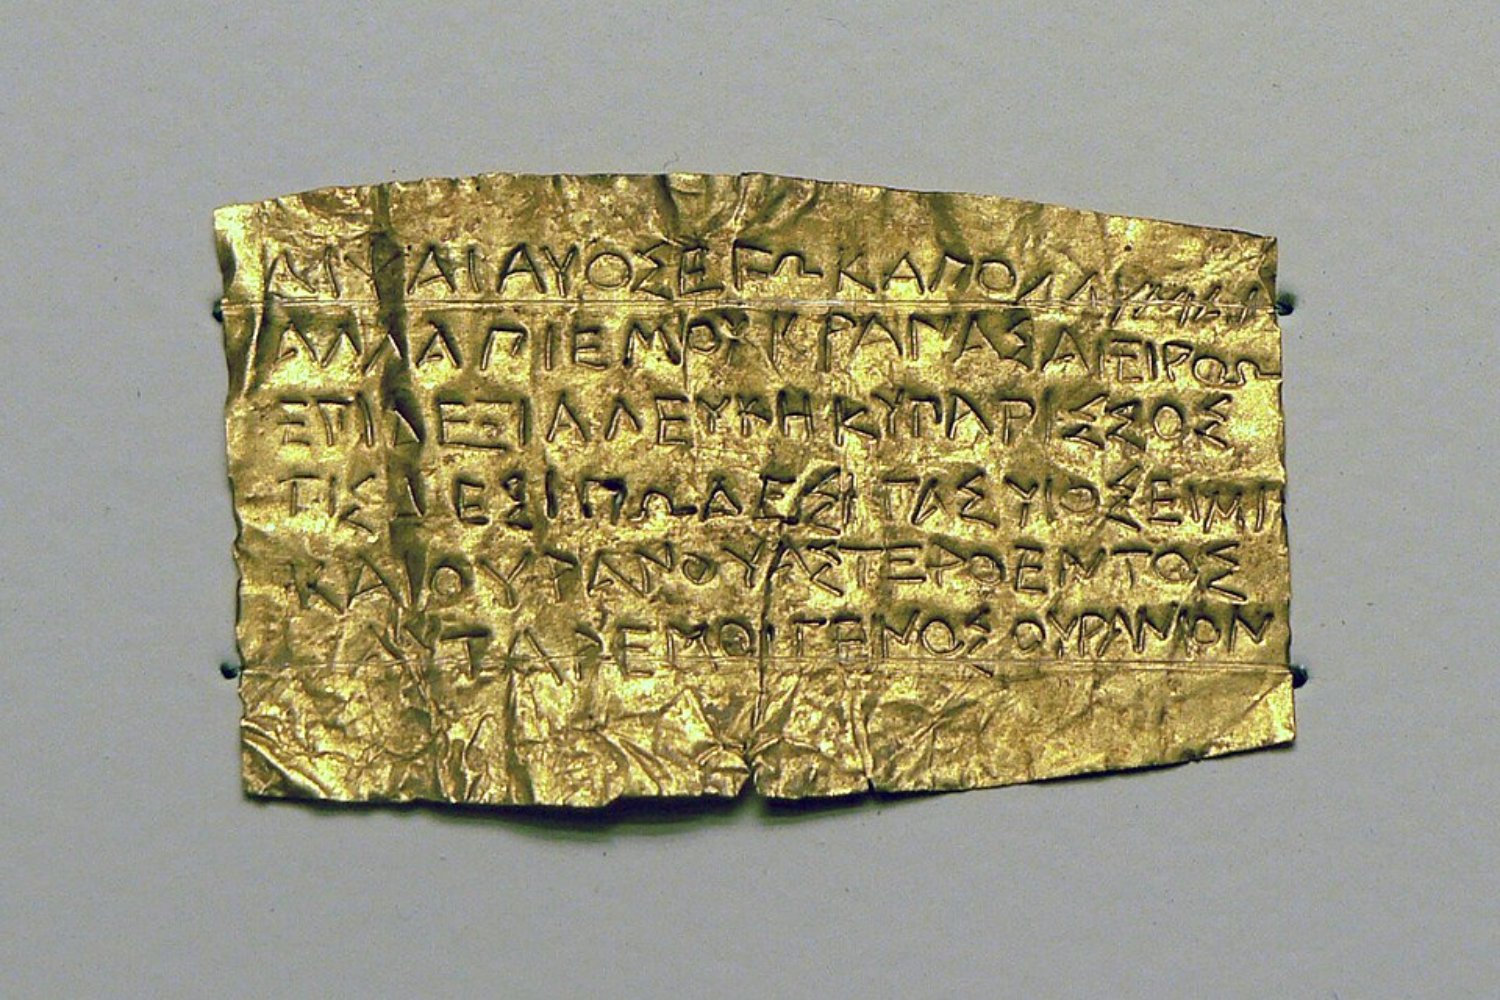 ΔΙΨΑΙΑΥΟΣΕΓΩΚΑΠΟΛΛΥΜΑΙ
ΑΛΛΑΠΙΕΜΟΥΚΡΑΝΑΣΑΙΕΙΡΟΩ
ΕΠΙΔΕΞΙΑΛΕΥΚΗΚΥΠΑΡΙΣΣΟΣ
ΤΙΣΔΕΣΙΠΩΔΕΣΙΤΑΣΥΙΟΣΕΙΜΙ
ΚΑΙΟΥΡΑΝΟΥΑΣΤΕΡΟΕΝΤΟΣ
ΑΥΤΑΡΕΜΟΙΓΕΝΟΣΟΥΡΑΝΙΟΝ